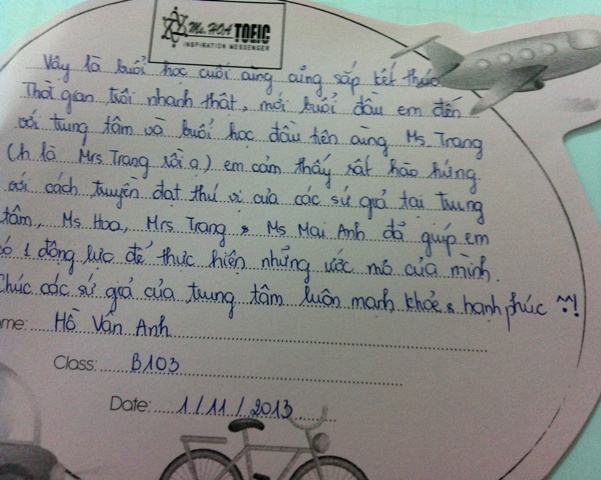 Ms. HOA TOEIC
INSPIRATION MESSENGER
Vậy là buổi học cuối cùng cũng sắp kết thúc.
Thời gian trôi nhanh thật, mới buổi đầu em đến
với trung tâm và buổi học đầu tiên cùng Ms. Trang
(h là Mrs Trang rồi ạ) em cảm thấy rất hào hứng
với cách truyền đạt thú vị của các sứ giả tại trung
tâm, Ms Hoa, Mrs Trang & Ms Mai Anh đã giúp em
có 1 động lực để thực hiện những ước mơ của mình.
Chúc các sứ giả của trung tâm luôn mạnh khỏe & hạnh phúc ^^!
me: Hồ Vân Anh
Class: B103
Date: 1/11/2013